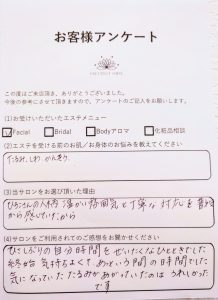 お客様アンケート
この度はご来店頂き、ありがとうございました。
今後の参考にさせて頂きますので、アンケートのご記入をお願いします。
(1)お受けいただいたエステメニュー
Facial Bridal Bodyアロマ 化粧品相談
(2)エステを受ける前のお肌／お身体のお悩みを教えてください
たるみ、しわ、かんそう
(3)当サロンをお選び頂いた理由
人柄 温かい雰囲気と丁寧な対応を普段
から感じていたから
(4)サロンをご利用されてのご感想をお聞かせください
ひさしぶりの自分時間をぜいたくなひとときでした
終始気持ちよくて、あっという間の時間でした
気になっていたたるみがあがっていたのはうれしかった
です